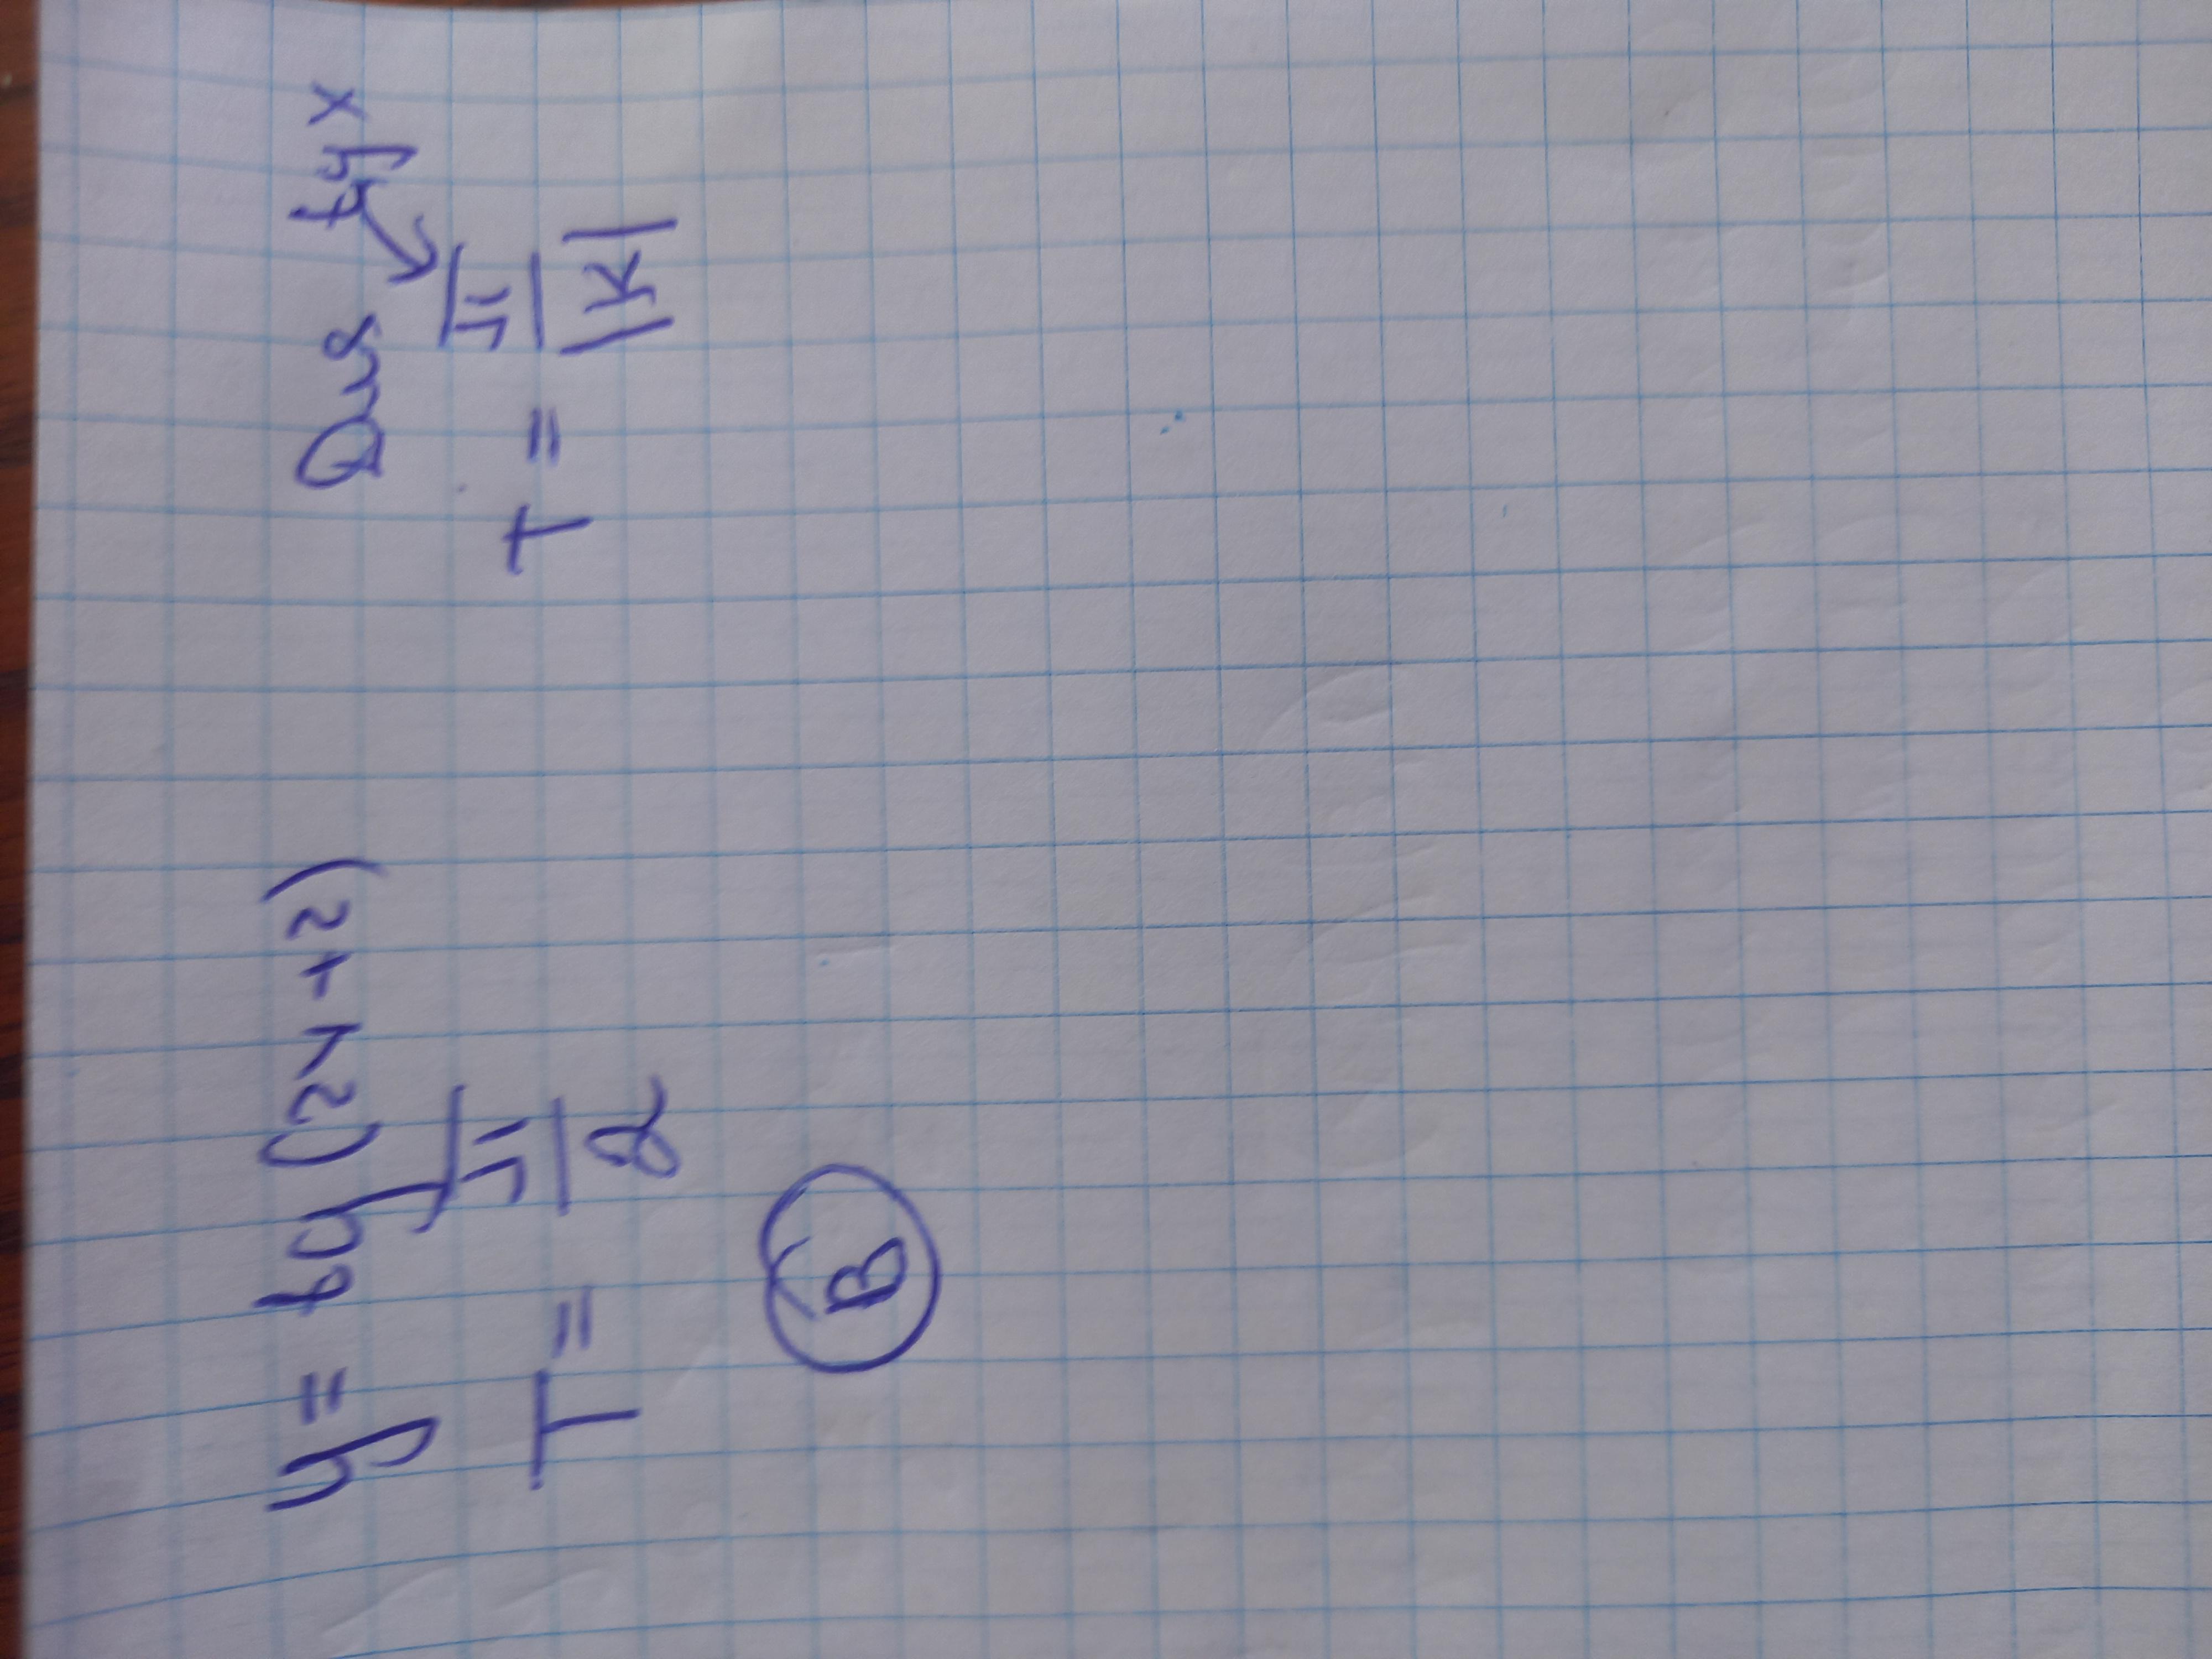 y = tg (2x + 2)
T = π/2
B
Для tg x
T = π/|K|